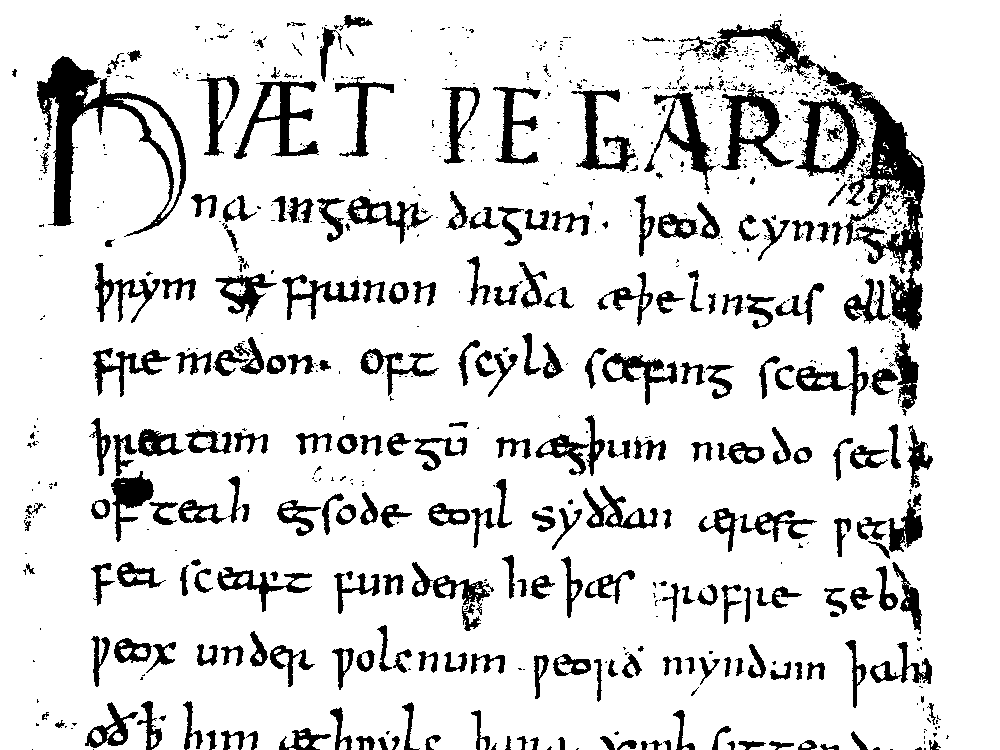 HǷÆT ǷE GARDE
na ingear dagum. þeod cyninga
þrym ge frunon huða æþelingas elle
fre medon. oft scyld scefing sceaþe
þreatum monegū mægþum meodo setla
of teah egsode eorl syððan ærest ƿear
fea sceaft funden he þæs frofre geba
ƿeox under ƿolcnum ƿeorð myndum þah
oð ꝥ him æghƿylc þara ymb sittendra